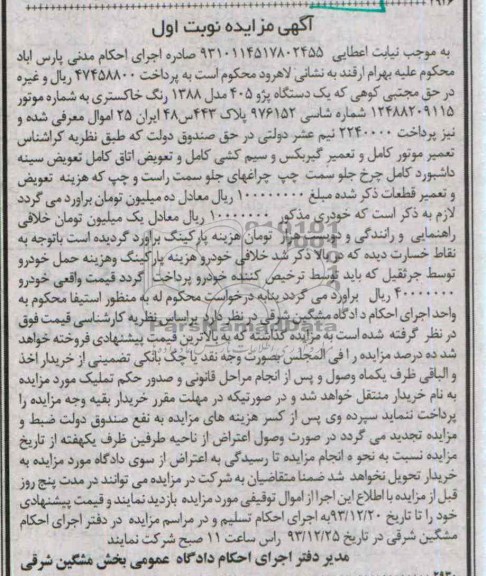 ۲۹۲۶
آگهی مزایده نوبت اول
به موجب نیابت اعطایی ۹۳۱۰۱۱۴۵۱۷۸۰۲۴۵۵ صادره اجرای احکام مدنی پارس اباد
محکوم علیه بهرام ارفند به نشانی لاهرود محکوم است به پرداخت ۴۷۴۵۸۸۰۰ ریال و غیره
در حق مجتبی کوهی که یک دستگاه پژو ۴۰۵ مدل ۱۳۸۸ رنگ خاکستری به شماره موتور
۱۲۴۸۸۲۰۹۱۱۵ شماره شاسی ۹۷۶۱۵۲ پلاک ۴۴۳س۴۸ ایران ۲۵ اموال معرفی شده و
نیز پرداخت ۲۲۴۰۰۰۰ نیم عشر دولتی در حق صندوق دولت که طبق نظریه کراشناس
تعمیر موتور کامل و تعمیر گیربکس و سیم کشی کامل و تعویض اتاق کامل تعویض سینه
داشبورد کامل چرخ جلو سمت چپ چراغهای جلو سمت راست و چپ که هزینه تعویض
و تعمیر قطعات ذکر شده مبلغ ۱۰۰۰۰۰۰۰۰ ریال معادل ده میلیون تومان براورد می گردد
لازم به ذکر است که خودری مذکور ۱۰۰۰۰۰۰۰ ریال معادل یک میلیون تومان خلافی
راهنمایی و رانندگی و هزار تومان هزینه پارکینگ براورد گردیده است باتوجه به
نقاط خسارت دیده که در بالا ذکر شد خلافی خودرو هزینه پارکینگ وهزینه حمل خودرو
توسط جرثقیل که باید توسط ترخیص کننده خودرو پرداخت گردد قیمت واقعی خودرو
۴۰۰۰۰۰۰۰ ریال براورد می گردد بنابه درخواست محکوم له به منظور استیفا محکوم به
واحد اجرای احکام دادگاه مشگین شرقی در نظر دارد براساس نظریه کارشناسی قیمت فوق
در نظر گرفته شده است به مزایده گذاشته که به بالاترین قیمت پیشنهادی فروخته خواهد
شد ده درصد مزایده را فی المجلس بصورت وجه نقد یا چک بانکی تضمینی از خریدار اخذ
و الباقی ظرف یکماه وصول و پس از انجام مراحل قانونی و صدور حکم تملیک مورد مزایده
به نام خریدار منتقل خواهد شد و در صورتیکه در مهلت مقرر خریدار بقیه وجه مزایده را
پرداخت ننماید سپرده وی پس از کسر هزینه های مزایده به نفع صندوق دولت ضبط و
مزایده تجدید می گردد در صورت وصول اعتراض از ناحیه طرفین ظرف یکهفته از تاریخ
مزایده نسبت به نحو ه انجام مزایده تا رسیدگی به اعتراض از سوی دادگاه مورد مزایده به
خریدار تحویل نخواهد شد ضمنا متقاضیان به شرکت در مزایده می توانند در مدت پنج روز
قبل از مزایده با اطلاع این اجرا از اموال توقیفی مورد مزایده بازدید نمایند و قیمت پیشنهادی
خود را تا تاریخ ۹۳/۱۲/۲۰به اجرای احکام تسلیم و در مراسم مزایده در دفتر اجرای احکام
مشگین شرقی در تاریخ ۹۳/۱۲/۲۵ راس ساعت ۱۱ صبح شرکت نمایند
مدیر دفتر اجرای احکام دادگاه عمومی بخش مشگین شرقی